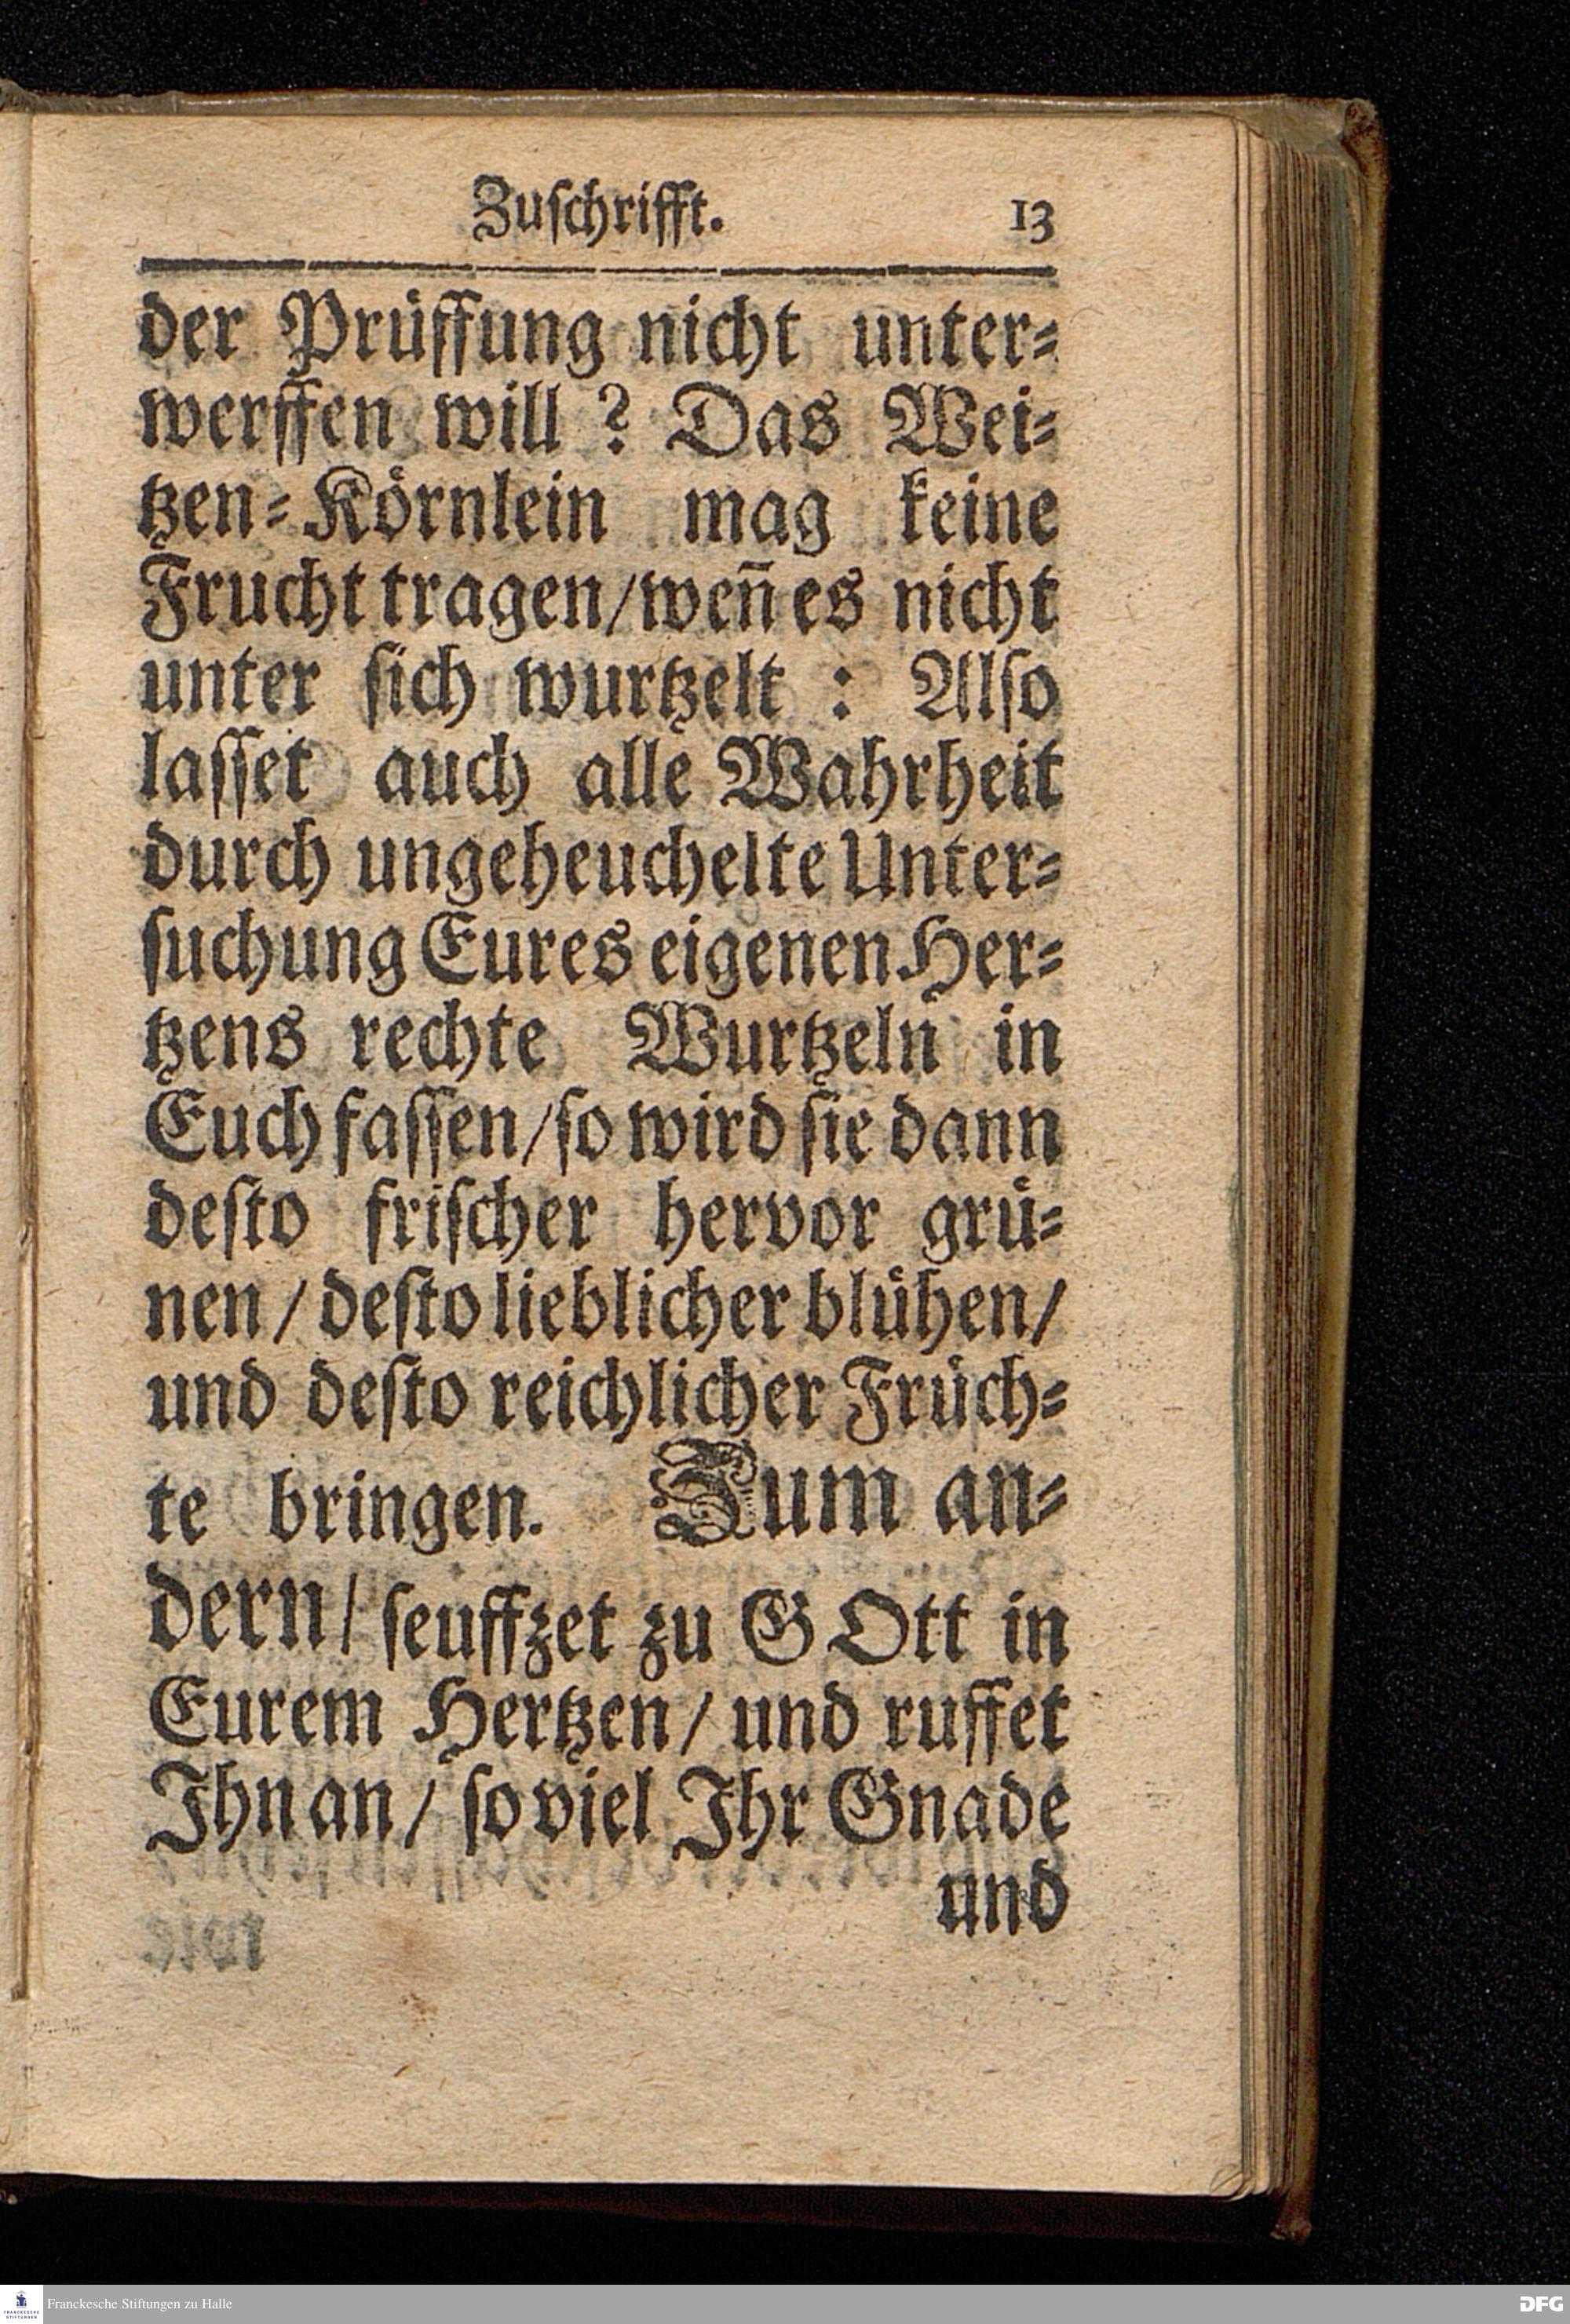 Zuſchrifft. 13
der Prüffung nicht unter⸗
werffen will ? Das Wei⸗
tzen⸗Körnlein mag keine
Frucht tragen/ weñ es nicht
unter ſich wurtzelt : Alſo
laſſet auch alle Wahrheit
durch ungeheuchelte Unter⸗
ſuchung Eures eigenen Her⸗
tzens rechte Wurtzeln in
Euch faſſen/ ſo wird ſie dann
deſto friſcher hervor grü⸗
nen / deſto lieblicher blühen/
und deſto reichlicher Früch⸗
te bringen. Zum an⸗
dern/ ſeuffzet zu GOtt in
Eurem Hertzen/ und ruffet
Ihn an/ ſo viel Ihr Gnade
und
FRANCKESCHE STIFTUNGEN Franckesche Stiftungen zu Halle DFG